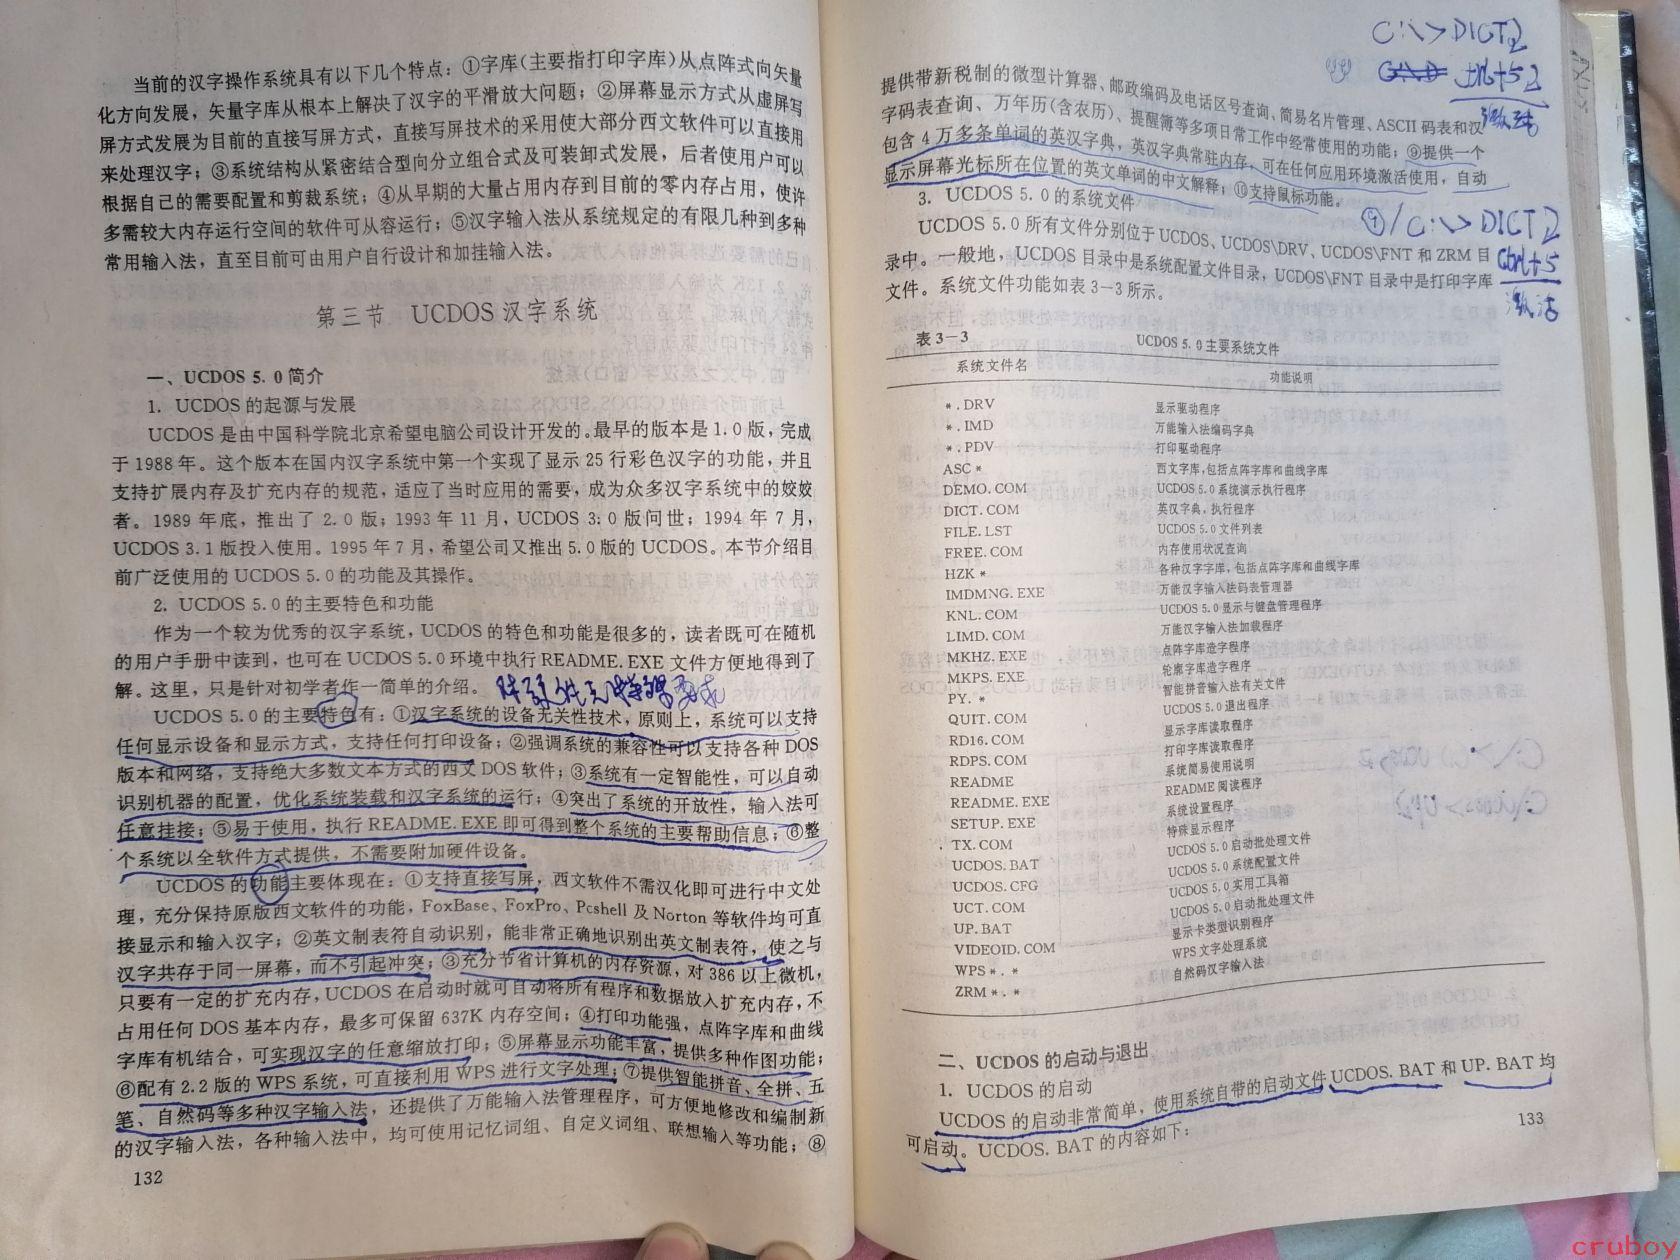 当前的汉字操作系统具有以下几个特点：①字库(主要指打印字库)从点阵式向矢量
化方向发展，矢量字库从根本上解决了汉字的平滑放大问题；②屏幕显示方式从虚屏写
屏方式发展为目前的直接写屏方式，直接写屏技术的采用使大部分西文软件可以直接用
来处理汉字；③系统结构从紧密结合型向分立组合式及可装卸式发展，后者使用户可以
根据自己的需要配置和剪裁系统；④从早期的大量占用内存到目前的零内存占用，使许
多需较大内存运行空间的软件可从容运行；⑤汉字输入法从系统规定的有限几种到多种
常用输入法，直至目前可由用户自行设计和加挂输入法。
第三节 UCDOS 汉字系统
一、UCDOS 5.0 简介
1. UCDOS 的起源与发展
UCDOS 是由中国科学院北京希望电脑公司设计开发的。最早的版本是 1.0 版，完成
于 1988 年。这个版本在国内汉字系统中第一个实现了显示 25 行彩色汉字的功能，并且
支持扩展内存及扩充内存的规范，适应了当时应用的需要，成为众多汉字系统中的姣姣
者。1989 年底，推出了 2.0 版；1993 年 11 月，UCDOS 3.0 版问世；1994 年 7 月，
UCDOS 3.1 版投入使用。1995 年 7 月，希望公司又推出 5.0 版的 UCDOS。本节介绍目
前广泛使用的 UCDOS 5.0 的功能及其操作。
2. UCDOS 5.0 的主要特色和功能
作为一个较为优秀的汉字系统，UCDOS 的特色和功能是很多的，读者既可在随机
的用户手册中读到，也可在 UCDOS 5.0 环境中执行 README.EXE 文件方便地得到了
解。这里，只是针对初学者作一简单的介绍。
UCDOS 5.0 的主要特色有：①汉字系统的设备无关性技术，原则上，系统可以支持
任何显示设备和显示方式，支持任何打印设备；②强调系统的兼容性可以支持各种 DOS
版本和网络，支持绝大多数文本方式的西文 DOS 软件；③系统有一定智能性，可以自动
识别机器的配置，优化系统装载和汉字系统的运行；④突出了系统的开放性，输入法可
任意挂接；⑤易于使用，执行 README.EXE 即可得到整个系统的主要帮助信息；⑥整
个系统以全软件方式提供，不需要附加硬件设备。
UCDOS 的功能主要体现在：①支持直接写屏，西文软件不需汉化即可进行中文处
理，充分保持原版西文软件的功能，FoxBase、FoxPro、Pcshell 及 Norton 等软件均可直
接显示和输入汉字；②英文制表符自动识别，能非常正确地识别出英文制表符，使之与
汉字共存于同一屏幕，而不引起冲突；③充分节省计算机的内存资源，对 386 以上微机，
只要有一定的扩充内存，UCDOS 在启动时就可自动将所有程序和数据放入扩充内存，不
占用任何 DOS 基本内存，最多可保留 637K 内存空间；④打印功能强，点阵字库和曲线
字库有机结合，可实现汉字的任意缩放打印；⑤屏幕显示功能丰富，提供多种作图功能；
⑥配有 2.2 版的 WPS 系统，可直接利用 WPS 进行文字处理；⑦提供智能拼音、全拼、五
笔、自然码等多种汉字输入法，还提供了万能输入法管理程序，可方便地修改和编制新
的汉字输入法，各种输入法中，均可使用记忆词组、自定义词组、联想输入等功能；⑧
132
C:\>DICT2
提供带新税制的微型计算器、邮政编码及电话区号查询、简易名片管理、ASCII 码表和汉
字码表查询、万年历(含农历)、提醒簿等多项日常工作中经常使用的功能；⑨提供一个
包含 4 万多条单词的英汉字典，英汉字典常驻内存，可在任何应用环境激活使用，自动
显示屏幕光标所在位置的英文单词的中文解释；⑩支持鼠标功能。
3. UCDOS 5.0 的系统文件
⑨/C:\>DICT2
Ctrl+5
激活
UCDOS 5.0 所有文件分别位于 UCDOS、UCDOS\DRV、UCDOS\FNT 和 ZRM 目
录中。一般地，UCDOS 目录中是系统配置文件目录，UCDOS\FNT 目录中是打印字库
文件。系统文件功能如表 3－3 所示。
表 3－3 UCDOS 5.0 主要系统文件
系统文件名 功能说明
*.DRV 显示驱动程序
*.IMD 万能输入法编码字典
*.PDV 打印驱动程序
ASC * 西文字库，包括点阵字库和曲线字库
DEMO.COM UCDOS 5.0 系统演示执行程序
DICT.COM 英汉字典，执行程序
FILE.LST UCDOS 5.0 文件列表
FREE.COM 内存使用状况查询
HZK * 各种汉字字库，包括点阵字库和曲线字库
IMDMNG.EXE 万能汉字输入法码表管理器
KNL.COM UCDOS 5.0 显示与键盘管理程序
LIMD.COM 万能汉字输入法加载程序
MKHZ.EXE 点阵字库造字程序
MKPS.EXE 轮廓字库造字程序
PY.* 智能拼音输入法有关文件
QUIT.COM UCDOS 5.0 退出程序
RD16.COM 显示字库读取程序
RDPS.COM 打印字库读取程序
README 系统简易使用说明
README.EXE README 阅读程序
SETUP.EXE 系统设置程序
TX.COM 特殊显示程序
UCDOS.BAT UCDOS 5.0 启动批处理文件
UCDOS.CFG UCDOS 5.0 系统配置文件
UCT.COM UCDOS 5.0 实用工具箱
UP.BAT UCDOS 5.0 启动批处理文件
VIDEOID.COM 显示卡类型识别程序
WPS *.* WPS 文字处理系统
ZRM *.* 自然码汉字输入法
二、UCDOS 的启动与退出
1. UCDOS 的启动
UCDOS 的启动非常简单，使用系统自带的启动文件 UCDOS.BAT 和 UP.BAT 均
可启动。UCDOS.BAT 的内容如下：
133
cruboy